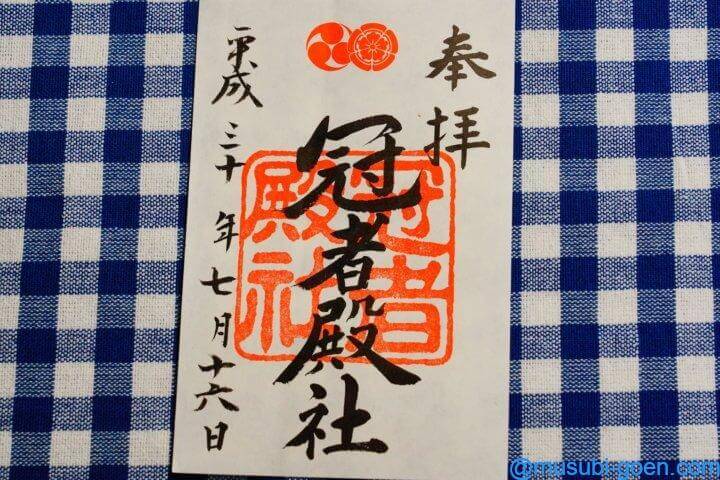 奉拝
冠者殿社
冠者
殿社
平成三十年七月十六日
@musubi-goen.com